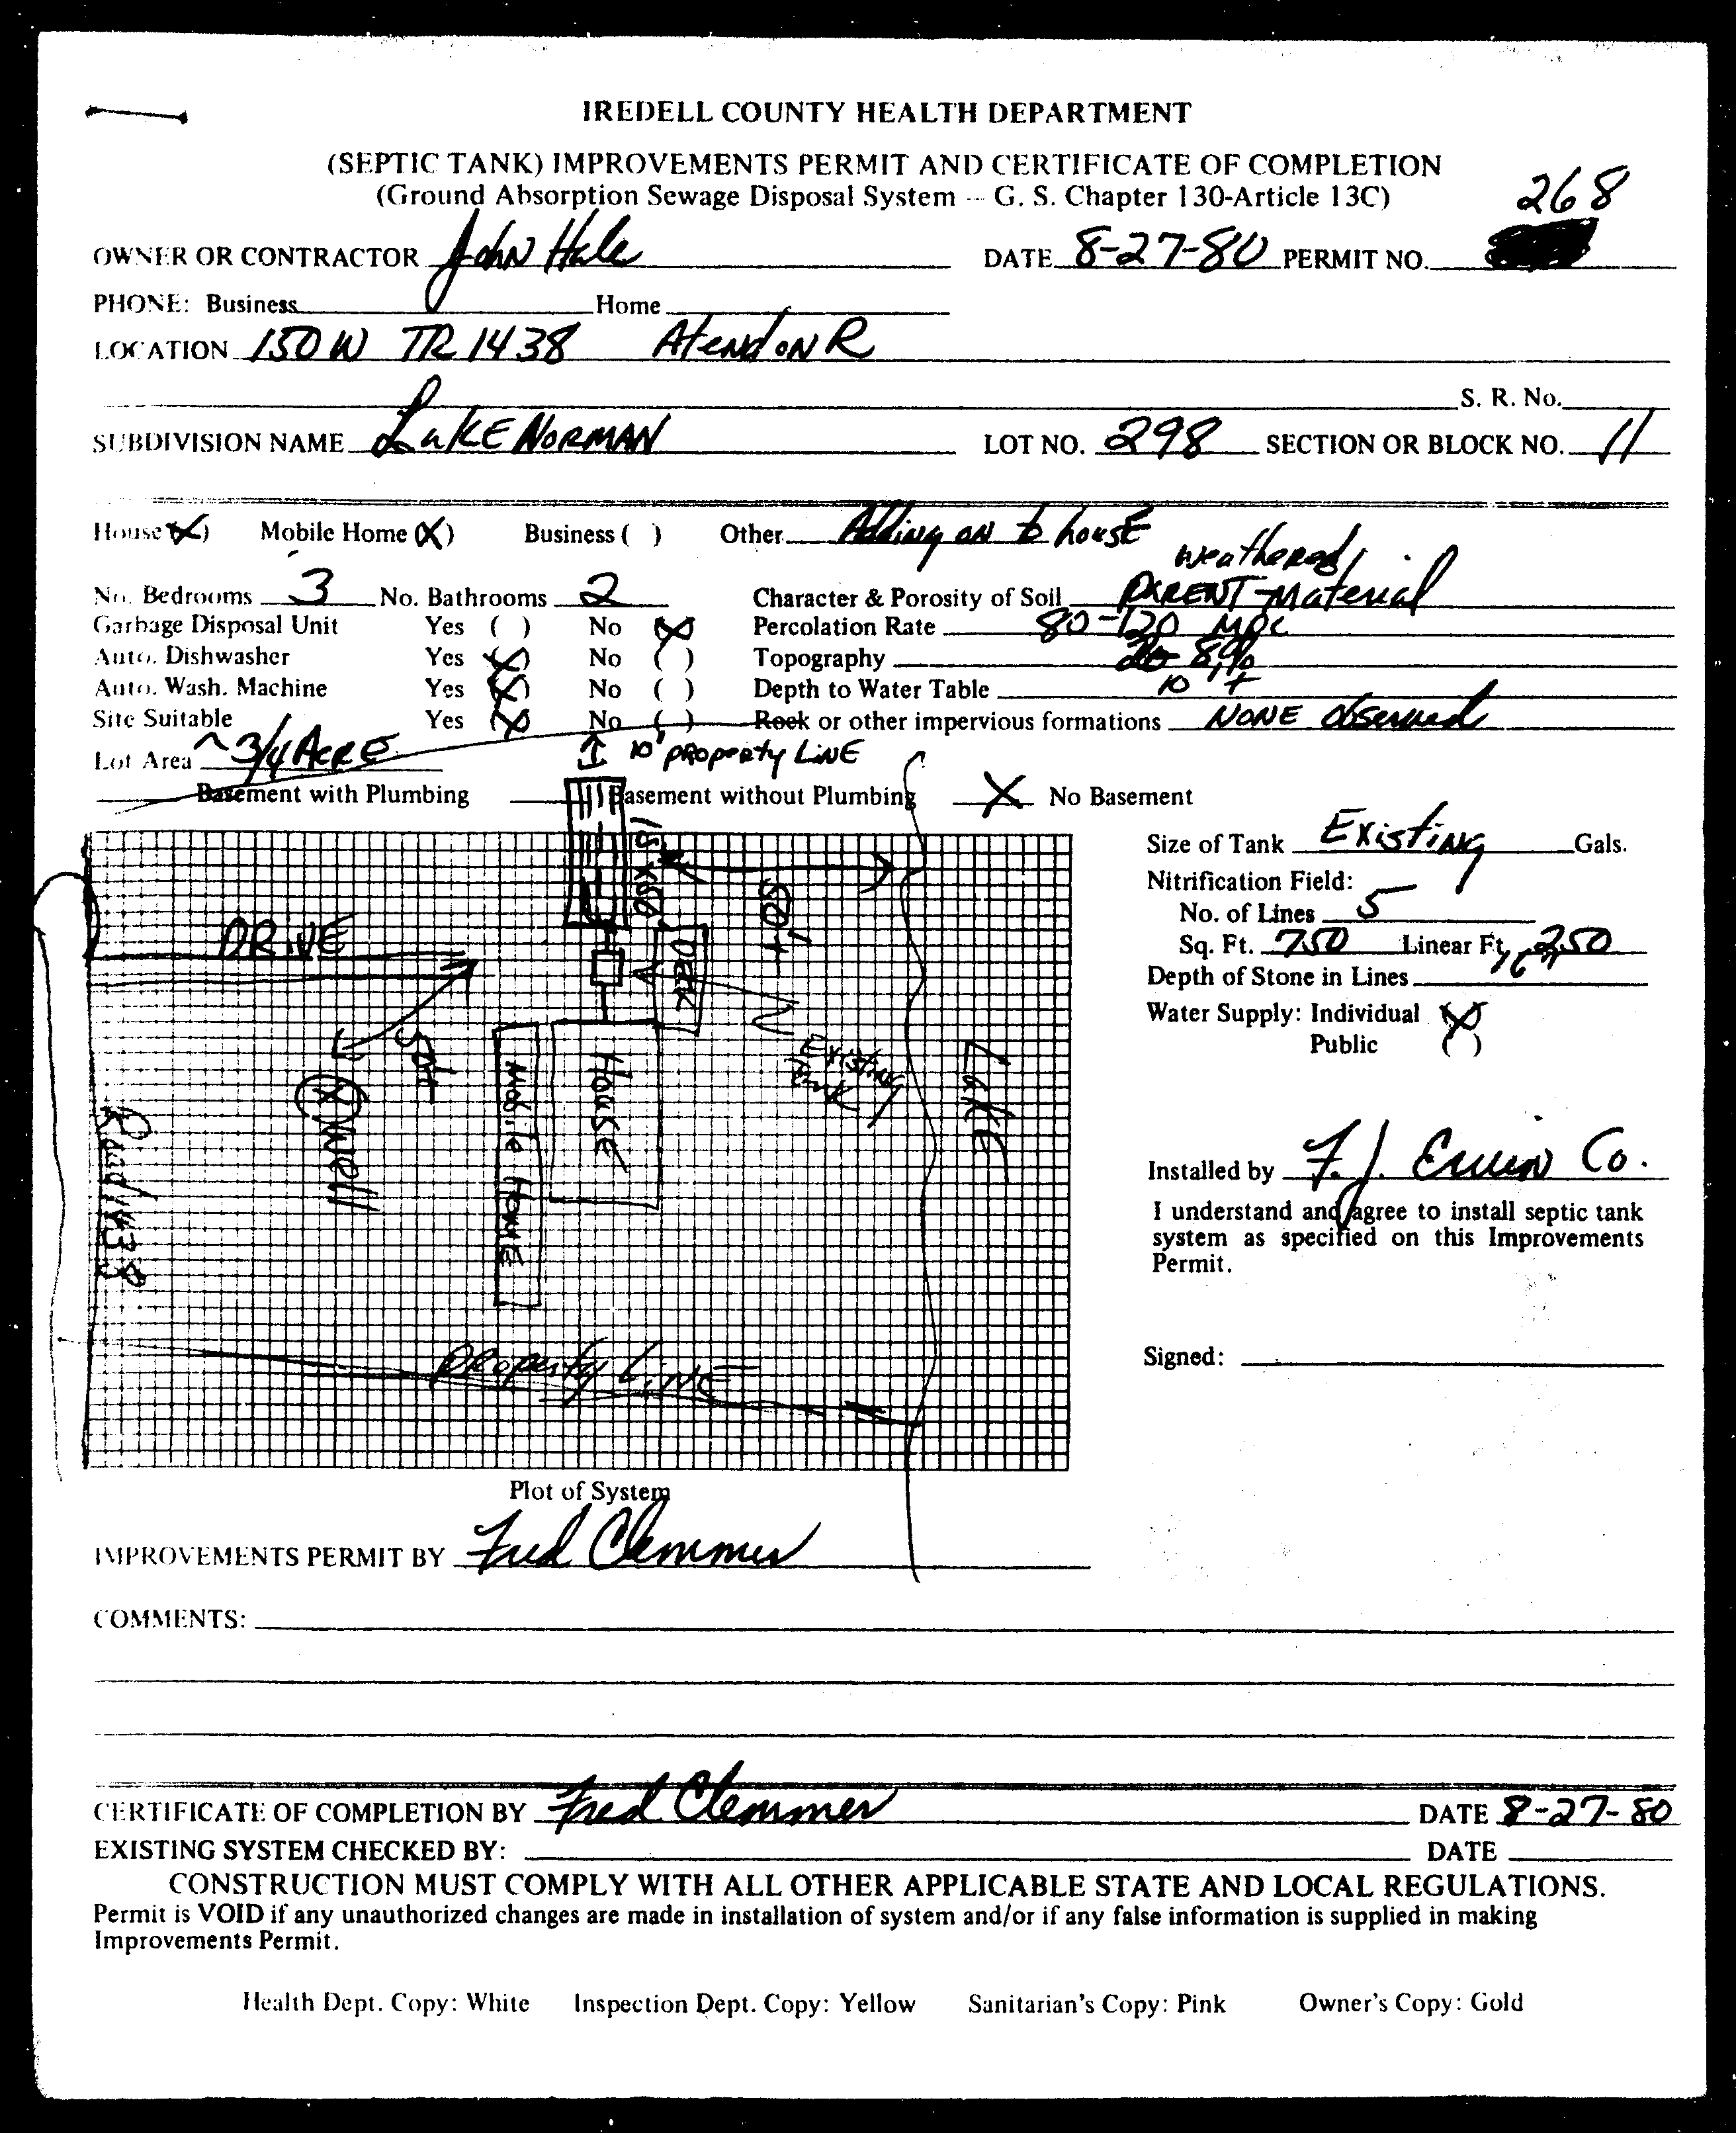 IREDELL COUNTY HEALTH DEPARTMENT
(SEPTIC TANK) IMPROVEMENTS PERMIT AND CERTIFICATE OF COMPLETION
(Ground Absorption Sewage Disposal System -- G. S. Chapter 130-Article 13C)
268
OWNER OR CONTRACTOR John Hale DATE 8-27-80 PERMIT NO.
PHONE: Business Home
LOCATION 150 W TR 1438 At end on R
S. R. No.
SUBDIVISION NAME Lake Norman LOT NO. 298 SECTION OR BLOCK NO. 11
House (X) Mobile Home (X) Business ( ) Other Adding on to house
weathered
No. Bedrooms 3 No. Bathrooms 2 Character & Porosity of Soil PARENT Material
Garbage Disposal Unit Yes ( ) No (X) Percolation Rate 80-120
Auto. Dishwasher Yes (X) No ( ) Topography 8%
Auto. Wash. Machine Yes (X) No ( ) Depth to Water Table 10 +
Site Suitable Yes (X) No ( ) Rock or other impervious formations NONE observed
Lot Area ~3/4 ACRE 10' property LINE
Basement with Plumbing Basement without Plumbing X No Basement
Size of Tank Existing Gals.
Nitrification Field:
No. of Lines 5
Sq. Ft. 750 Linear Ft. 250
Depth of Stone in Lines
Water Supply: Individual (X)
Public ( )
DRIVE
DECK
50'+
50'+
Existing
Tank
LAKE
House
Mobile Home
Well
Road 1438
Property Line
Installed by F. J. Erwin Co.
I understand and agree to install septic tank
system as specified on this Improvements
Permit.
Signed:
Plot of System
IMPROVEMENTS PERMIT BY Fred Clemmer
COMMENTS:
CERTIFICATE OF COMPLETION BY Fred Clemmer DATE 8-27-80
EXISTING SYSTEM CHECKED BY: DATE
CONSTRUCTION MUST COMPLY WITH ALL OTHER APPLICABLE STATE AND LOCAL REGULATIONS.
Permit is VOID if any unauthorized changes are made in installation of system and/or if any false information is supplied in making
Improvements Permit.
Health Dept. Copy: White Inspection Dept. Copy: Yellow Sanitarian's Copy: Pink Owner's Copy: Gold